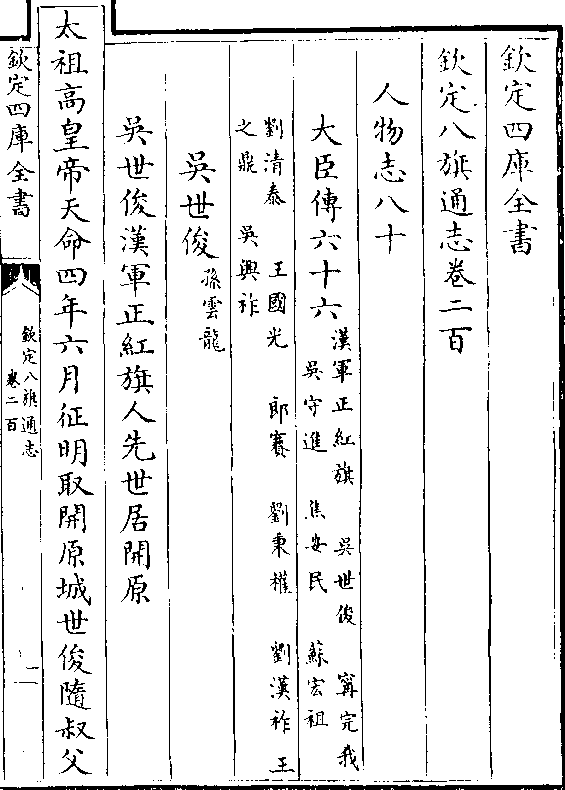 欽定四庫全書
欽定八旗通志卷二百
人物志八十
大臣傳六十六漢軍正紅旗 吳世俊 甯完我
吳守進 焦安民 蘇宏祖
劉清泰 王國光 郎賽 劉秉權 劉漢祚 王
之鼎 吳興祚
吳世俊孫雲龍
吳世俊漢軍正紅旗人先世居開原
太祖高皇帝天命四年六月征明取開原城世俊隨叔父
欽定四庫全書
欽定八旗通志
卷二百
一